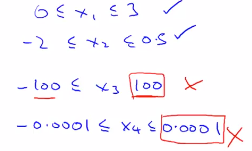 0 ≤ x₁ ≤ 3 ✓
-2 ≤ x₂ ≤ 0.5 ✓
-100 ≤ x₃ 100 ×
-0.0001 ≤ x₄ ≤ 0.0001 ×